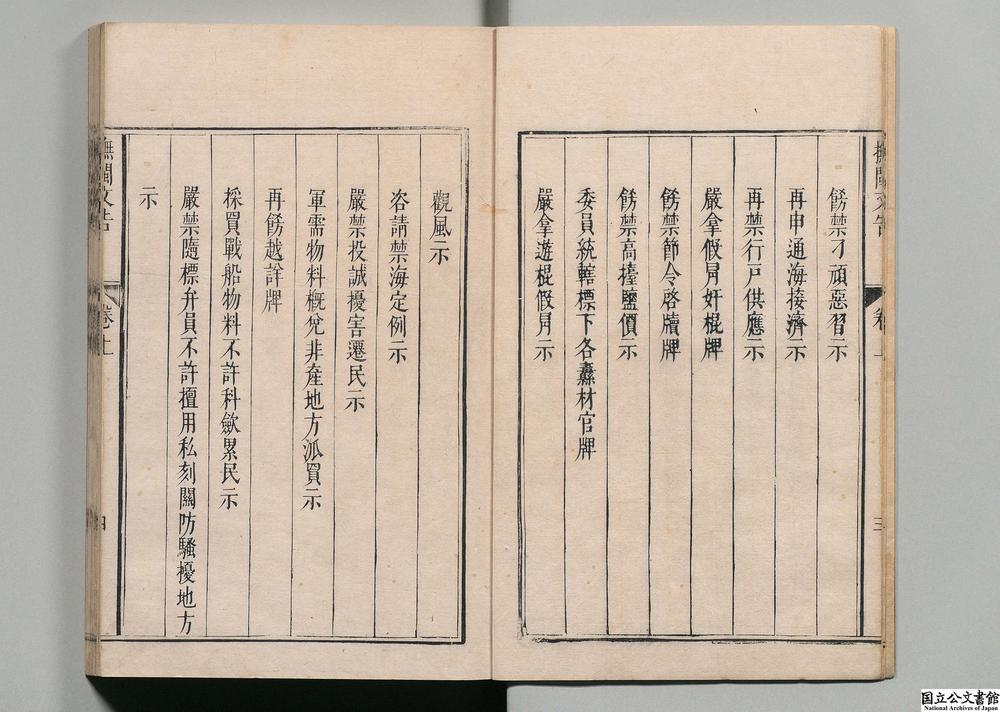 飭禁刁頑惡習示
再申通海接濟示
再禁行戶供應示
嚴拿假冐奸棍牌
飭禁節令啓牘牌
飭禁高擡鹽價示
委員統轄標下各纛材官牌
嚴拿遊棍假冐示
撫閩文告
卷上
三
觀風示
咨請禁海定例示
嚴禁投誠擾害遷民示
軍需物料概免非產地方派買示
再飭越訴牌
採買戰船物料不許科斂累民示
嚴禁隨標弁員不許擅用私刻關防騷擾地方
示
撫閩文告
卷上
四
国立公文書館
National Archives of Japan